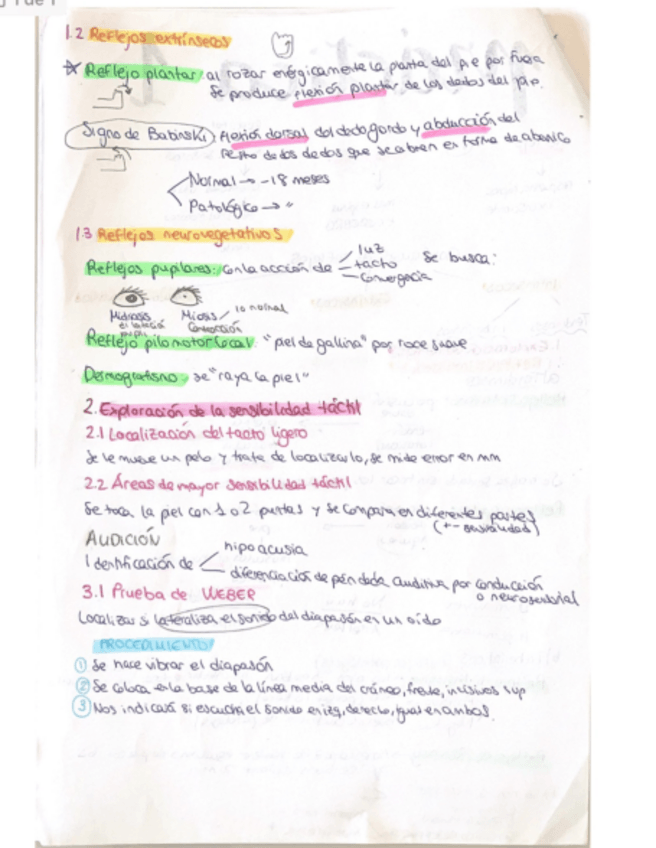 1.2 Reflejos extrínsecos
Reflejo plantar: al rozar enérgicamente la planta del pie por fuera
Se produce flexión plantar de los dedos del pie.
Signo de Babinski: flexión dorsal del dedo gordo y abducción del
resto de dedos que se abren en forma de abanico
Normal → -18 meses
Patológico → "
1.3 Reflejos neurovegetativos
Reflejos pupilares: con la acción de
luz
tacto
convergencia
Se busca:
Midriasis
dilatación
Miosis
Contracción
lo normal
Reflejo pilomotor local: "piel de gallina" por roce suave
Demografismo: se "raya la piel"
2. Exploración de la sensibilidad táctil
2.1 Localización del tacto ligero
Se le mueve un pelo y trata de localizarlo, se mide error en mm
2.2 Áreas de mayor sensibilidad táctil
Se toca la piel con 1 o 2 puntas y se compara en diferentes partes
(+- sensibilidad)
AUDICIÓN
Identificación de
hipoacusia
diferenciación de pérdida auditiva por conducción
o neurosensorial
3.1 Prueba de WEBER
Localizar si lateraliza el sonido del diapasón en un oído
PROCEDIMIENTO
1 Se hace vibrar el diapasón
2 Se coloca en la base de la línea media del cráneo, frente, incisivos sup
3 Nos indicará si escucha el sonido en izq, derecho, igual en ambos.